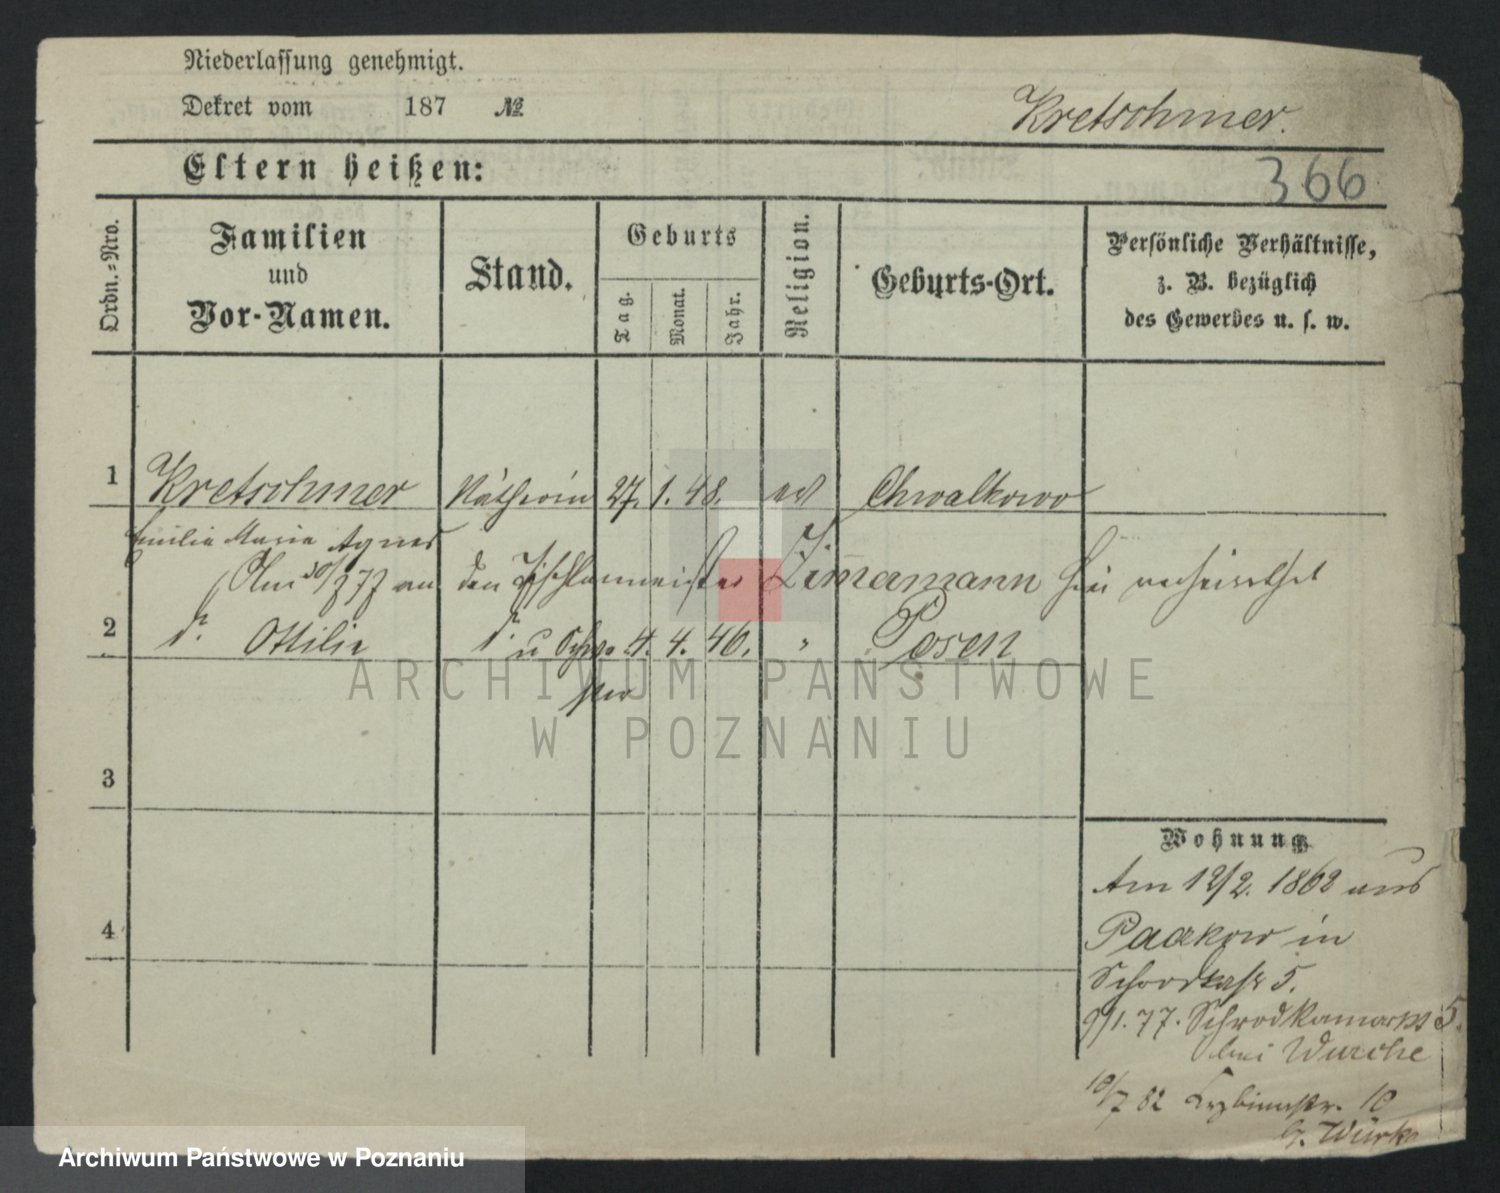 Niederlassung genehmigt.
Dekret vom 187 №
Kretschmer.
Eltern heißen:
366
Ordn.=Nro.
Familien
und
Vor-Namen.
Stand.
Geburts
Tag.
Monat.
Jahr.
Religion.
Geburts-Ort.
Persönliche Verhältnisse,
z. B. bezüglich
des Gewerbes u. s. w.
1 Kretschmer Näherin 27. 1. 48. ev Chwalkowo
Emilie Maria Agnes
(Am 30/7 77 an den Tischlermeister Zimmermann hier verheirathet
2 d. Ottilie d. u Schwe 4. 4. 46. " Posen
ster
ARCHIWUM PAŃSTWOWE
W POZNANIU
3
4
Wohnung
Am 12/2. 1868 aus
in
5.
9/1. 77. Schrodkamarkt 5.
bei Wursche
10/7 82 10
Archiwum Państwowe w Poznaniu